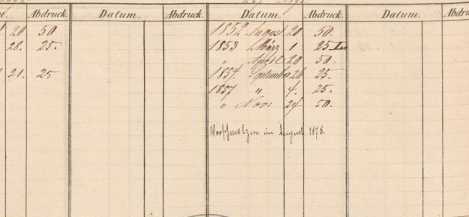 Abdruck. Datum. Abdruck. Datum. Abdruck. Datum.
20 50. 1852 August 20 50.
28. 25. 1853 März 1 25.
" April 20 50.
21. 25 1854 September 26 25.
1857 " 4. 25.
" Nov. 24. 50.
im August 1876.